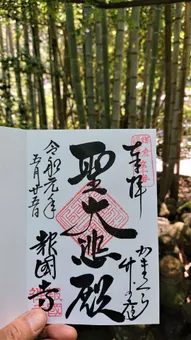 奉拝
かまくら
竹の庭
聖大悲殿
令和元年
五月廿五日
報國寺